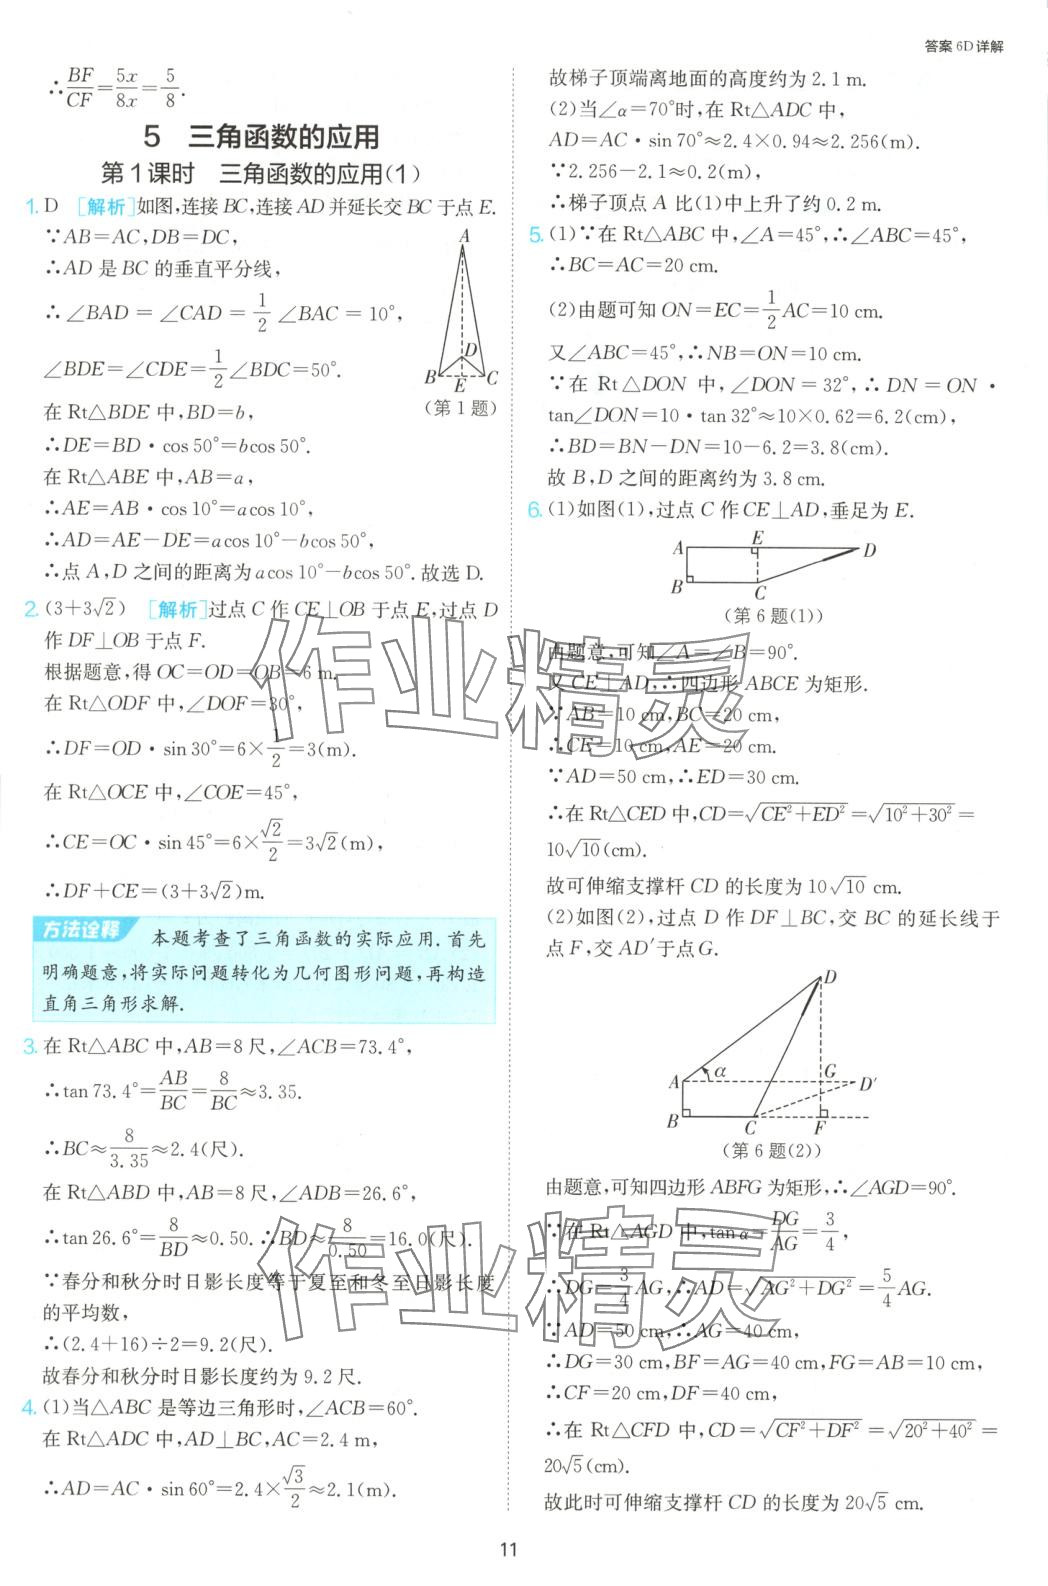 答案 6D 详解
∴BF/CF=5x/8x=5/8.
5 三角函数的应用
第 1 课时 三角函数的应用(1)
1. D [解析]如图,连接 BC,连接 AD 并延长交 BC 于点 E.
∵AB=AC,DB=DC,
∴AD 是 BC 的垂直平分线,
∴∠BAD=∠CAD=1/2∠BAC=10°,
∠BDE=∠CDE=1/2∠BDC=50°.
A
D
B E C
(第 1 题)
在 Rt△BDE 中,BD=b,
∴DE=BD·cos 50°=bcos 50°.
在 Rt△ABE 中,AB=a,
∴AE=AB·cos 10°=acos 10°,
∴AD=AE-DE=acos 10°-bcos 50°,
∴点 A,D 之间的距离为 acos 10°-bcos 50°.故选 D.
2. (3+3√2) [解析]过点 C 作 CE⊥OB 于点 E,过点 D
作 DF⊥OB 于点 F.
根据题意,得 OC=OD=OB=6 m.
在 Rt△ODF 中,∠DOF=30°,
∴DF=OD·sin 30°=6×1/2=3(m).
在 Rt△OCE 中,∠COE=45°,
∴CE=OC·sin 45°=6×√2/2=3√2(m),
∴DF+CE=(3+3√2)m.
方法诠释 本题考查了三角函数的实际应用.首先
明确题意,将实际问题转化为几何图形问题,再构造
直角三角形求解.
3. 在 Rt△ABC 中,AB=8 尺,∠ACB=73.4°,
∴tan 73.4°=AB/BC=8/BC≈3.35.
∴BC≈8/3.35≈2.4(尺).
在 Rt△ABD 中,AB=8 尺,∠ADB=26.6°,
∴tan 26.6°=8/BD≈0.50.∴BD≈8/0.50=16.0(尺).
∵春分和秋分时日影长度等于夏至和冬至日影长度
的平均数,
∴(2.4+16)÷2=9.2(尺).
故春分和秋分时日影长度约为 9.2 尺.
4. (1)当△ABC 是等边三角形时,∠ACB=60°.
在 Rt△ADC 中,AD⊥BC,AC=2.4 m,
∴AD=AC·sin 60°=2.4×√3/2≈2.1(m).
故梯子顶端离地面的高度约为 2.1 m.
(2)当∠α=70°时,在 Rt△ADC 中,
AD=AC·sin 70°≈2.4×0.94≈2.256(m).
∵2.256-2.1≈0.2(m),
∴梯子顶点 A 比(1)中上升了约 0.2 m.
5. (1)∵在 Rt△ABC 中,∠A=45°,∴∠ABC=45°,
∴BC=AC=20 cm.
(2)由题可知 ON=EC=1/2AC=10 cm.
又∠ABC=45°,∴NB=ON=10 cm.
∵在 Rt△DON 中,∠DON=32°,∴DN=ON·
tan∠DON=10·tan 32°≈10×0.62=6.2(cm),
∴BD=BN-DN=10-6.2=3.8(cm).
故 B,D 之间的距离约为 3.8 cm.
6. (1)如图(1),过点 C 作 CE⊥AD,垂足为 E.
A E D
B C
(第 6 题(1))
由题意,可知∠A=∠B=90°.
又 CE⊥AD,∴四边形 ABCE 为矩形.
∵AB=10 cm,BC=20 cm,
∴CE=10 cm,AE=20 cm.
∵AD=50 cm,∴ED=30 cm.
∴在 Rt△CED 中,CD=√(CE²+ED²)=√(10²+30²)=
10√10(cm).
故可伸缩支撑杆 CD 的长度为 10√10 cm.
(2)如图(2),过点 D 作 DF⊥BC,交 BC 的延长线于
点 F,交 AD′于点 G.
D
A α G D′
B C F
(第 6 题(2))
由题意,可知四边形 ABFG 为矩形,∴∠AGD=90°.
∵在 Rt△AGD 中,tan α=DG/AG=3/4,
∴DG=3/4AG,∴AD=√(AG²+DG²)=5/4AG.
∵AD=50 cm,∴AG=40 cm,
∴DG=30 cm,BF=AG=40 cm,FG=AB=10 cm,
∴CF=20 cm,DF=40 cm,
∴在 Rt△CFD 中,CD=√(CF²+DF²)=√(20²+40²)=
20√5(cm).
故此时可伸缩支撑杆 CD 的长度为 20√5 cm.
作业精灵
作业精灵
11